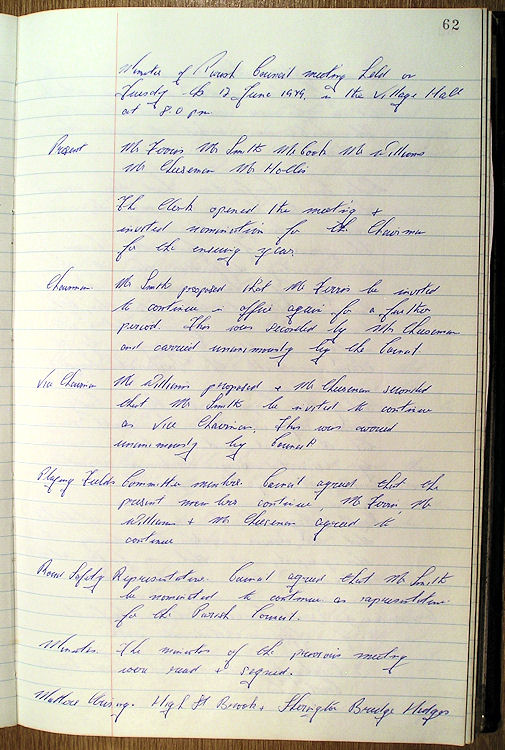 62
Minutes of Parish Council meeting held on
Tuesday the 12 June 1979, in the Village Hall
at 8.0 pm
Present Mr Ferris Mr Smith Mr Cook Mr Williams
Mr Cheeseman Mr Hollis
The Clerk opened the meeting &
invited nomination for the Chairman
for the ensuing year.
Chairman Mr Smith proposed that Mr Ferris be invited
to continue in office again for a further
period. This was seconded by Mr Cheeseman
and carried unanimously by the Council
Vice Chairman Mr Williams proposed & Mr Cheeseman seconded
that Mr Smith be invited to continue
as Vice Chairman. This was
unanimously by Council
Playing Fields Committee members. Council agreed that the
present members continue, Mr Ferris, Mr
Williams & Mr Cheeseman agreed to
continue
Road Safety Representative. Council agreed that Mr Smith
be nominated to continue as representative
for the Parish Council.
Minutes. The minutes of the previous meeting
were read & signed.
Matters Arising. High St Brook & Bridge Hedges